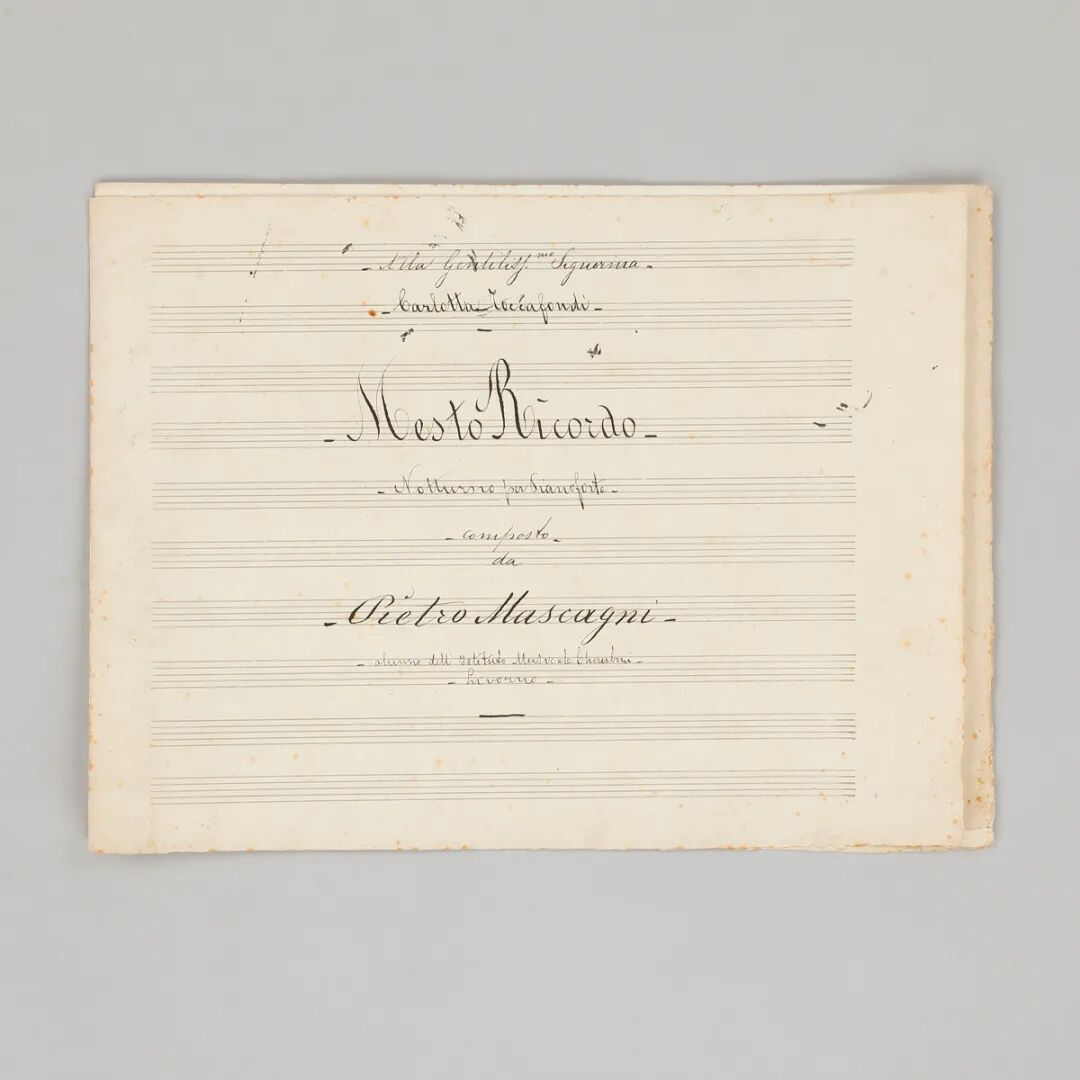 - Alla Gentiliss.me Signorina -
- Carlotta Toccafondi -
- Mesto Ricordo -
- Notturno per Pianoforte -
- composto -
da
- Pietro Mascagni -
- alunno dell' Istituto Musicale Cherubini -
- Livorno -